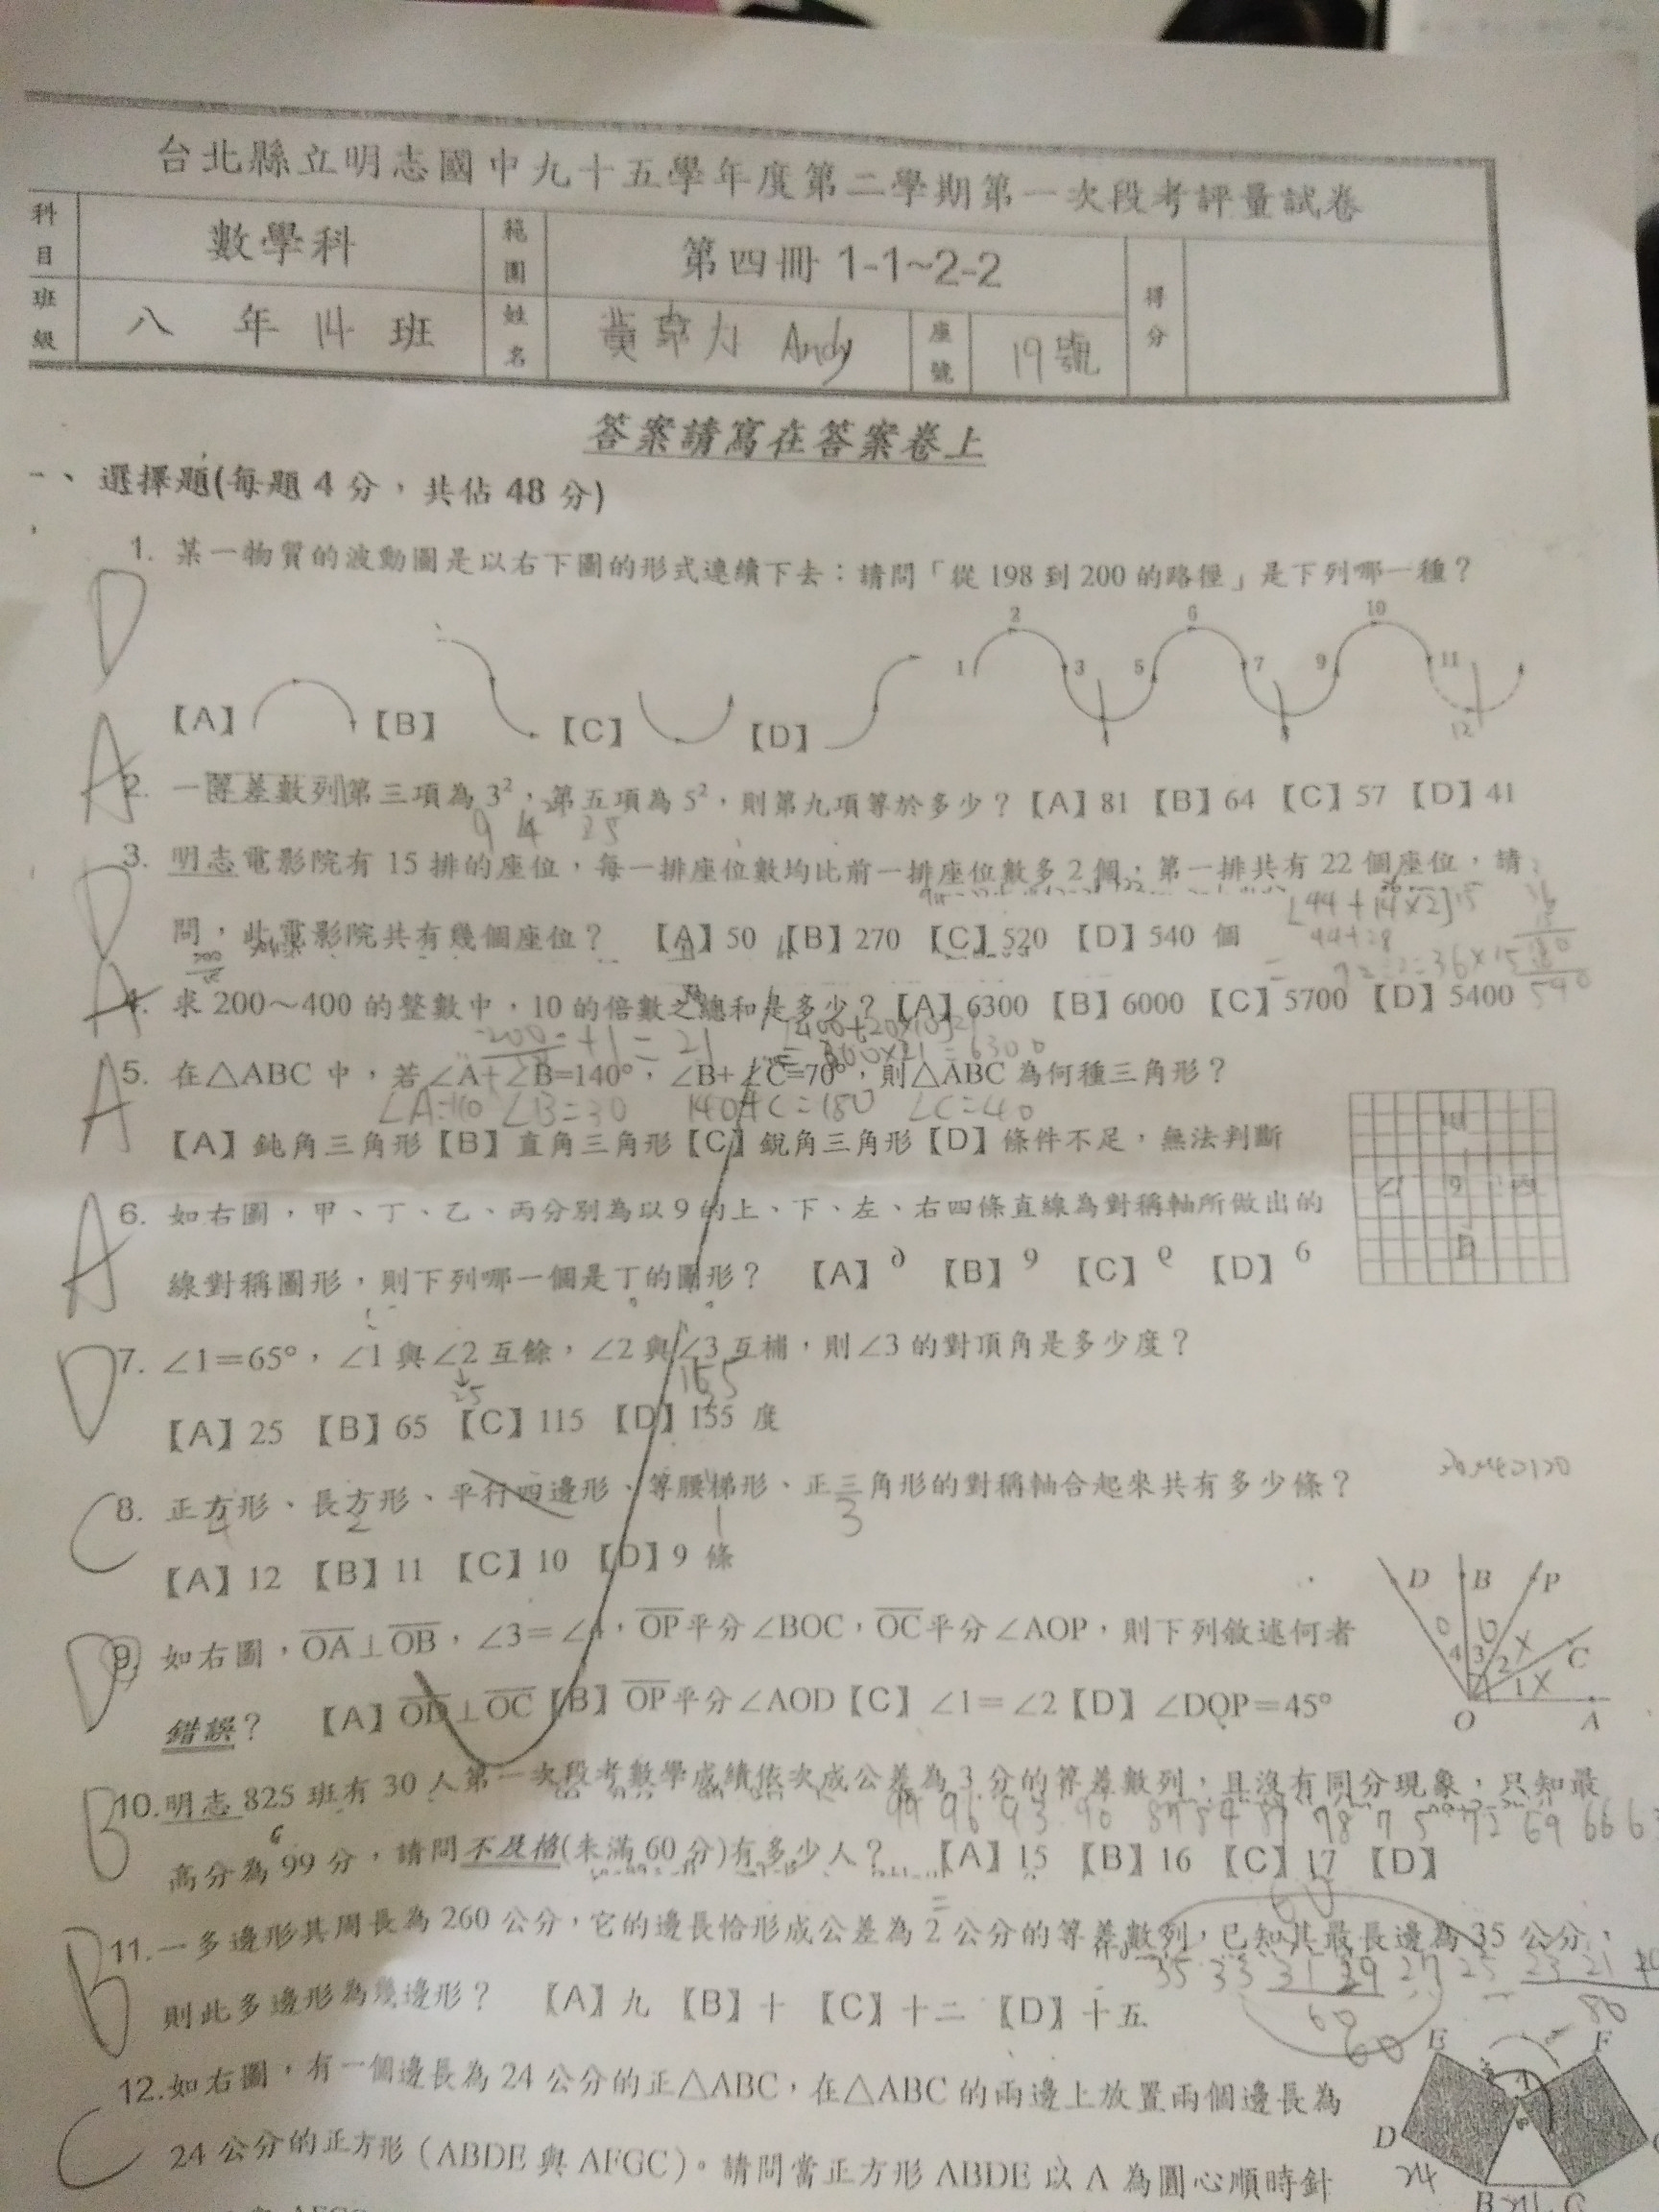 台北縣立明志國中九十五學年度第二學期第一次段考評量試卷
科目 數學科 範圍 第四冊 1-1~2-2 得分
班級 八 年 14 班 姓名 黃 Andy 座號 19號
答案請寫在答案卷上
一、選擇題(每題 4 分，共佔 48 分)
D 1. 某一物質的波動圖是以右下圖的形式連續下去：請問「從 198 到 200 的路徑」是下列哪一種？
1 2 3 5 6 7 9 10 11 12
【A】 【B】 【C】 【D】
A 2. 一等差數列第三項為 3²，第五項為 5²，則第九項等於多少？【A】81 【B】64 【C】57 【D】41
9 25
D 3. 明志電影院有 15 排的座位，每一排座位數均比前一排座位數多 2 個，第一排共有 22 個座位，請
[44+14×2]15
問，此電影院共有幾個座位？ 【A】50 【B】270 【C】520 【D】540 個
44+28
36×15
540
A 4. 求 200～400 的整數中，10 的倍數之總和是多少？【A】6300 【B】6000 【C】5700 【D】5400
+1=21 [400+20×10]21
600×21=6300
A 5. 在△ABC 中，若∠A+∠B=140°，∠B+∠C=70°，則△ABC 為何種三角形？
∠A=110 ∠B=30 140+∠C=180 ∠C=40
【A】鈍角三角形【B】直角三角形【C】銳角三角形【D】條件不足，無法判斷
A 6. 如右圖，甲、丁、乙、丙分別為以 9 的上、下、左、右四條直線為對稱軸所做出的
甲 乙 9 丙 丁
線對稱圖形，則下列哪一個是丁的圖形？ 【A】 【B】 【C】 【D】
D 7. ∠1＝65°，∠1 與∠2 互餘，∠2 與∠3 互補，則∠3 的對頂角是多少度？
25 155
【A】25 【B】65 【C】115 【D】155 度
C 8. 正方形、長方形、平行四邊形、等腰梯形、正三角形的對稱軸合起來共有多少條？
4 2 1 3
【A】12 【B】11 【C】10 【D】9 條
D B P
D 9. 如右圖，OA⊥OB，∠3＝∠4，OP平分∠BOC，OC平分∠AOP，則下列敘述何者
4 3 2 1 X X C
錯誤？ 【A】OD⊥OC【B】OP平分∠AOD【C】∠1＝∠2【D】∠DOP＝45°
O A
B 10.明志 825 班有 30 人第一次段考數學成績依次成公差為 3 分的等差數列，且沒有同分現象，只知最
99 96 93 90 87 84 81 78 75 72 69 66 63
高分為 99 分，請問不及格(未滿 60 分)有多少人？ 【A】15 【B】16 【C】17 【D】
60
B 11.一多邊形其周長為 260 公分，它的邊長恰形成公差為 2 公分的等差數列，已知其最長邊為 35 公分，
35 33 31 29 27 25 23 21
則此多邊形為幾邊形？ 【A】九 【B】十 【C】十二 【D】十五
60 80
60
E F
C 12.如右圖，有一個邊長為 24 公分的正△ABC，在△ABC 的兩邊上放置兩個邊長為
D
24 公分的正方形（ABDE 與 AFGC）。請問當正方形 ABDE 以 A 為圓心順時針
24 B C